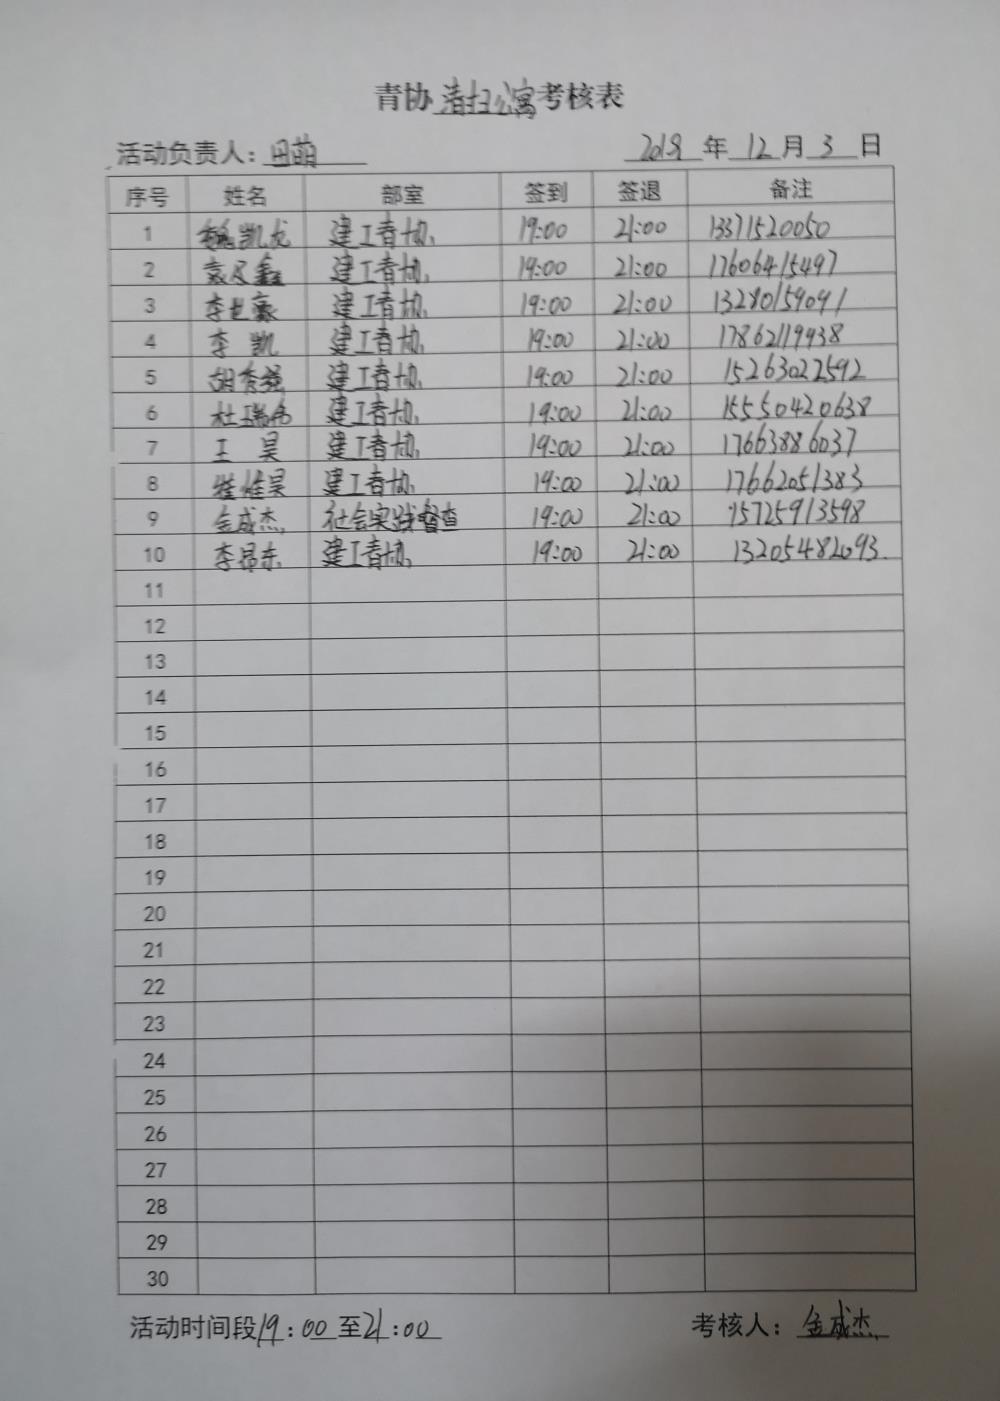 青协清扫公寓考核表
活动负责人：田萌 2018 年 12 月 3 日
序号 姓名 部室 签到 签退 备注
1 魏凯龙 建工青协 19:00 21:00 13371520050
2 袁及鑫 建工青协 19:00 21:00 17606415497
3 李世豪 建工青协 19:00 21:00 13280159091
4 李凯 建工青协 19:00 21:00 17862119938
5 胡秀强 建工青协 19:00 21:00 15263022592
6 杜瑞伟 建工青协 19:00 21:00 15550420638
7 王昊 建工青协 19:00 21:00 17663886037
8 建工青协 19:00 21:00 17662051383
9 金成杰 社会实践督查 19:00 21:00 15725913598
10 李昂东 建工青协 19:00 21:00 13205482093
11
12
13
14
15
16
17
18
19
20
21
22
23
24
25
26
27
28
29
30
活动时间段19:00至21:00 考核人：金成杰